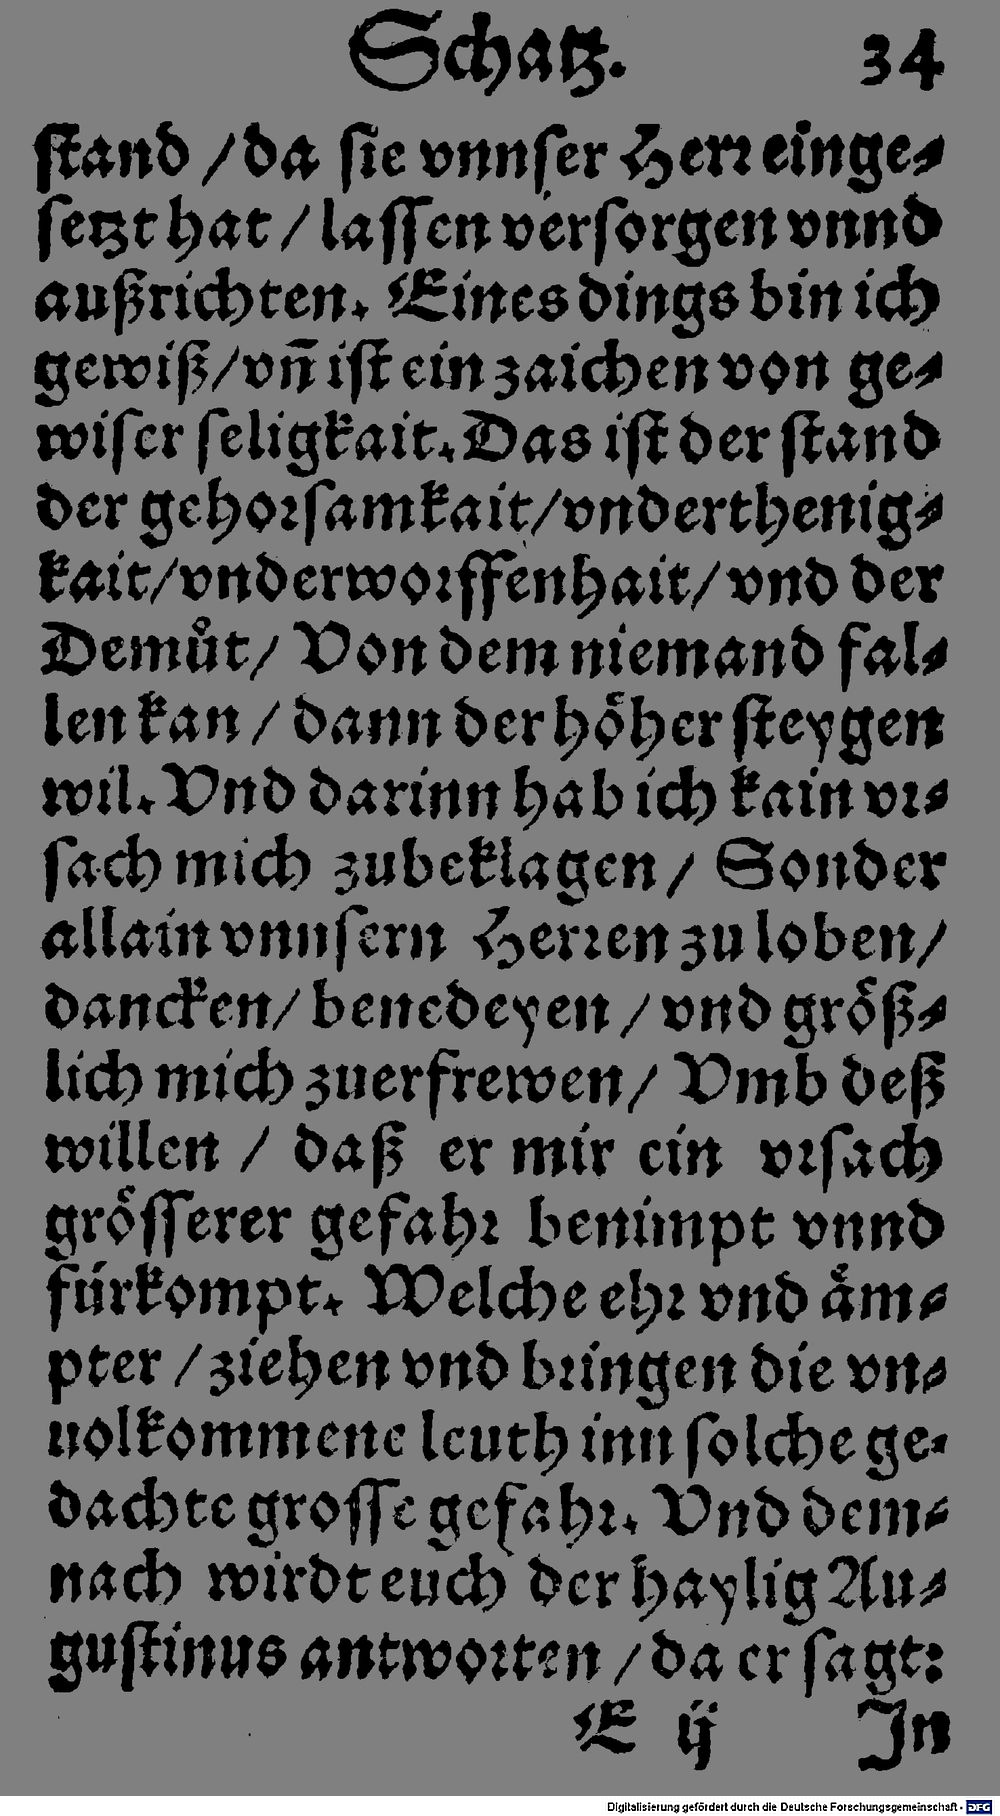 Schatz. 34
ſtand / da ſie vnnſer Herꝛ einge⸗
ſetzt hat / laſſen verſorgen vnnd
außrichten. Eines dings bin ich
gewiß / vn̄ iſt ein zaichen von ge⸗
wiſer ſeligkait. Das iſt der ſtand
der gehoꝛſamkait / vnderthenig⸗
kait / vnderwoꝛffenhait / vnd der
Demuͦt / Von dem niemand fal⸗
len kan / dann der hoͤher ſteygen
wil. Vnd darinn hab ich kain vꝛ⸗
ſach mich zubeklagen / Sonder
allain vnnſern Herꝛen zu loben /
dancken / benedeyen / vnd groͤß⸗
lich mich zuerfrewen / Vmb deß
willen / daß er mir ein vꝛſach
groͤſſerer gefahꝛ benimpt vnnd
fürkompt. Welche ehꝛ vnd aͤm⸗
pter / ziehen vnd bꝛingen die vn⸗
uolkommene leuth inn ſolche ge⸗
dachte groſſe gefahꝛ. Vnd dem⸗
nach wirdt euch der haylig Au⸗
guſtinus antwoꝛten / da er ſagt:
E ij In
Digitalisierung gefördert durch die Deutsche Forschungsgemeinschaft - DFG